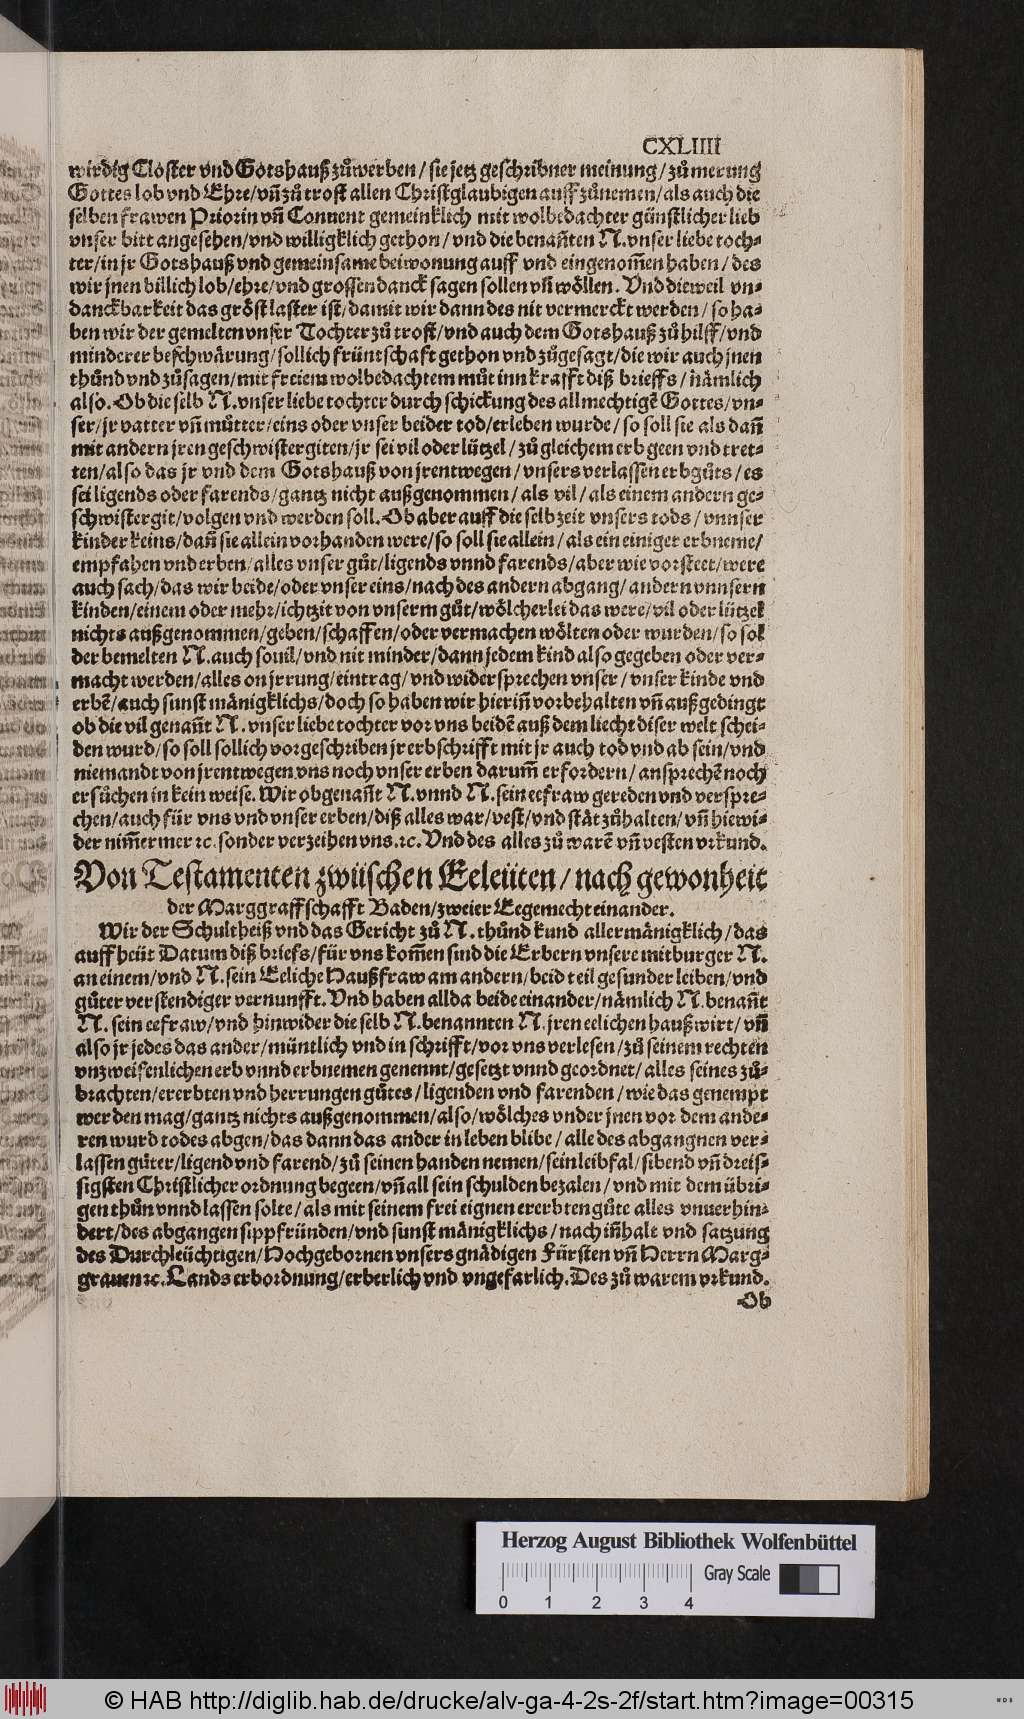 CXLIIII
wirdig Closter vnd Gotshauß zůwerben / sie jetz geschribner meinung / zů merung
Gottes lob vnd Ehre / vñ zů trost allen Christglaubigen auff zůnemen / als auch die
selben frawen Priorin vñ Conuent gemeinklich mit wolbedachter günstlicher lieb
vnser bitt angesehen / vnd willigklich gethon / vnd die benañten N. vnser liebe toch-
ter / in jr Gotshauß vnd gemeinsame beiwonung auff vnd eingenom̃en haben / des
wir jnen billich lob / ehre / vnd grossen danck sagen sollen vñ wöllen. Vnd dieweil vn-
danckbarkeit das gröst laster ist / damit wir dann des nit vermerckt werden / so ha-
ben wir der gemelten vnser Tochter zů trost / vnd auch dem Gotshauß zů hilff / vnd
minderer beschwärung / sollich früntschaft gethon vnd zůgesagt / die wir auch jnen
thůnd vnd zůsagen / mit freiem wolbedachtem můt inn krafft diß brieffs / nämlich
also. Ob die selb N. vnser liebe tochter durch schickung des allmechtigẽ Gottes / vn-
ser / jr vatter vñ můtter / eins oder vnser beider tod / erleben wurde / so soll sie als dañ
mit andern jren geschwistergiten / jr sei vil oder lützel / zů gleichem erb geen vnd tret-
ten / also das jr vnd dem Gotshauß von jrentwegen / vnsers verlassen erbgůts / es
sei ligends oder farends / gantz nicht außgenommen / als vil / als einem andern ge-
schwistergit / volgen vnd werden soll. Ob aber auff die selb zeit vnsers tods / vnnser
kinder keins / dañ sie allein vorhanden were / so soll sie allein / als ein einiger erbneme /
empfahen vnd erben / alles vnser gůt / ligends vnnd farends / aber wie vorsteet / were
auch sach / das wir beide / oder vnser eins / nach des andern abgang / andern vnnsern
kinden / einem oder mehr / ichtzit von vnserm gůt / wölcherlei das were / vil oder lützel
nichts außgenommen / geben / schaffen / oder vermachen wölten oder wurden / so sol
der bemelten N. auch souil / vnd nit minder / dann jedem kind also gegeben oder ver-
macht werden / alles on jrrung / eintrag / vnd widersprechen vnser / vnser kinde vnd
erbẽ / auch sunst mänigklichs / doch so haben wir hieriñ vorbehalten vñ außgedingt
ob die vil genañt N. vnser liebe tochter vor vns beidẽ auß dem liecht diser welt schei-
den wurd / so soll sollich vorgeschriben jr erbschrifft mit jr auch tod vnd ab sein / vnd
niemandt von jrentwegen vns noch vnser erben darum̃ erfordern / ansprechẽ noch
ersůchen in kein weise. Wir obgenañt N. vnnd N. sein eefraw gereden vnd verspre-
chen / auch für vns vnd vnser erben / diß alles war / vest / vnd stät zůhalten / vñ hiewi-
der nim̃er mer ꝛc. sonder verzeihen vns. ꝛc. Vnd des alles zů warẽ vñ vesten vrkund.
Von Testamenten zwüschen Eeleüten / nach gewonheit
der Marggraffschafft Baden / zweier Eegemecht einander.
Wir der Schultheiß vnd das Gericht zů N. thůnd kund allermänigklich / das
auff heüt Datum diß briefs / für vns kom̃en sind die Erbern vnsere mitburger N.
an einem / vnd N. sein Eeliche Haußfraw am andern / beid teil gesunder leiben / vnd
gůter verstendiger vernunfft. Vnd haben allda beide einander / nämlich N. benañt
N. sein eefraw / vnd hinwider die selb N. benannten N. jren eelichen haußwirt / vñ
also jr jedes das ander / müntlich vnd in schrifft / vor vns verlesen / zů seinem rechten
vnzweifenlichen erb vnnd erbnemen genennt / gesetzt vnnd geordnet / alles seines zů-
brachten / ererbten vnd herrungen gůtes / ligenden vnd farenden / wie das genempt
werden mag / gantz nichts außgenommen / also / wölches vnder jnen vor dem ande-
ren wurd todes abgen / das dann das ander in leben blibe / alle des abgangnen ver-
lassen gůter / ligend vnd farend / zů seinen handen nemen / sein leibfal / sibend vñ dreis-
sigsten Christlicher ordnung begeen / vñ all sein schulden bezalen / vnd mit dem übri-
gen thůn vnnd lassen solte / als mit seinem frei eignen ererbten gůte alles vnuerhin-
dert / des abgangen sippfründen / vnd sunst mänigklichs / nach iñhalt vnd satzung
des Durchleüchtigen / Hochgebornen vnsers gnädigen Fürsten vñ Herrn Marg-
grauen ꝛc. Lands erbordnung / erberlich vnd vngefarlich. Des zů warem vrkund.
Ob
Herzog August Bibliothek Wolfenbüttel
Gray Scale
0 1 2 3 4
© HAB http://diglib.hab.de/drucke/alv-ga-4-2s-2f/start.htm?image=00315